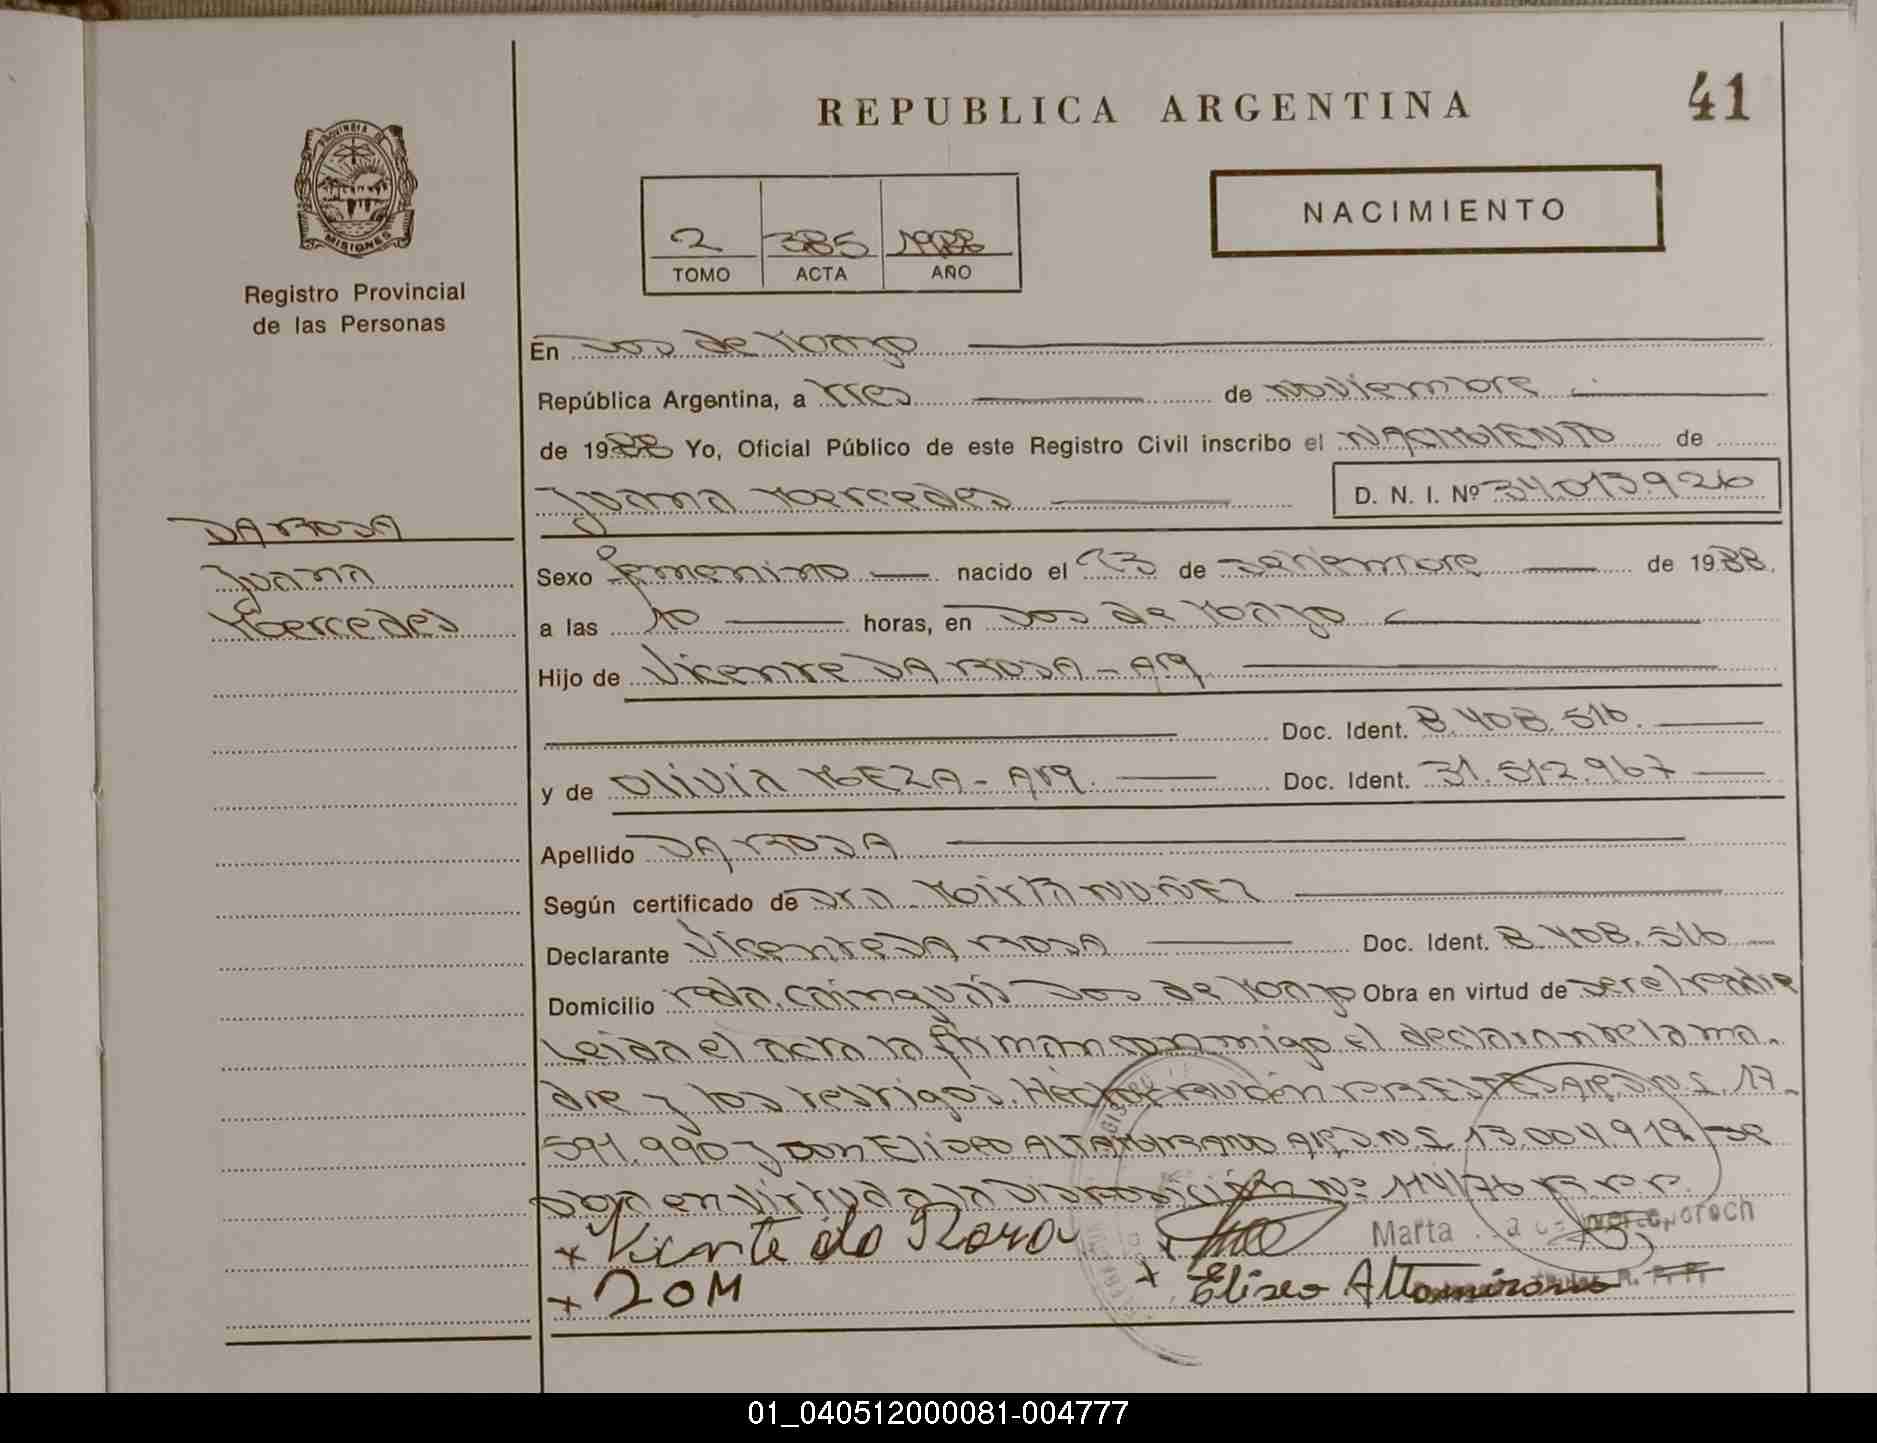 REPUBLICA ARGENTINA
41
PROVINCIA DE
MISIONES
Registro Provincial
de las Personas
NACIMIENTO
2 385 1988
TOMO ACTA AÑO
En Dos de Mayo
República Argentina, a tres de noviembre
de 1988 Yo, Oficial Público de este Registro Civil inscribo el NACIMIENTO de
Juana Mercedes D. N. I. Nº 34.013.926
DA ROSA
Juana
Mercedes
Sexo femenino nacido el 13 de setiembre de 1988.
a las 10 horas, en Dos de Mayo
Hijo de Vicente DA ROSA - Arg
Doc. Ident. 8.408.516.
y de Olivia MEZA - Arg. Doc. Ident. 31.512.967
Apellido DA ROSA
Según certificado de Dra. Mirta NUÑEZ
Declarante Vicente DA ROSA Doc. Ident. 8.408.516
Domicilio rda. Cainguás Dos de Mayo Obra en virtud de ser el padre
Leida el acta la firman conmigo el declarante la ma-
dre y los testigos. Héctor PRESTES Arg. D.N.I. 17.
591.990 y don Eliseo ALTAMIRANO Arg. D.N.I. 13.004.919
en virtud a la Disposición Nº 114/76 R.P.P.
x Vicente da Rosa
Marta
+ 20M
+ Eliseo Altamirano
01_040512000081-004777